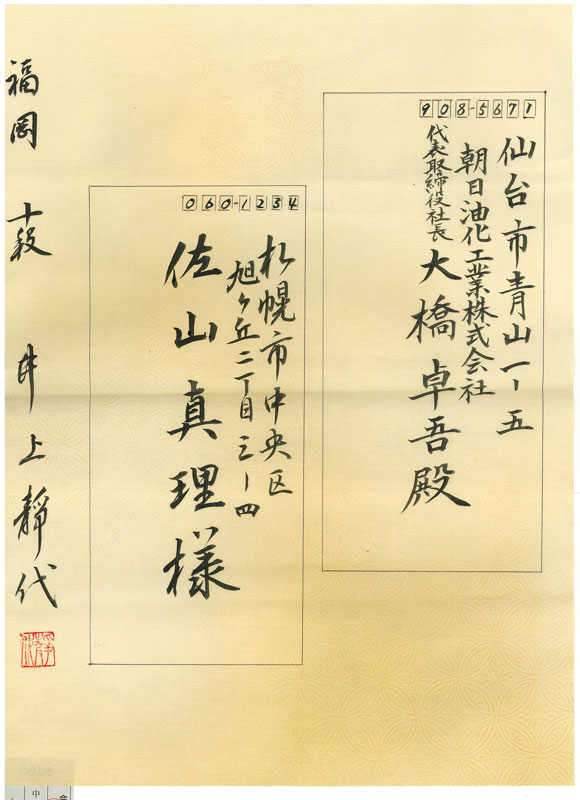 908-5671
仙台市青山一ー五
朝日油化工業株式会社
代表取締役社長 大橋卓吾殿
060-1234
札幌市中央区
旭ヶ丘二丁目三ー四
佐山真理様
福岡 十段 井上靜代
中